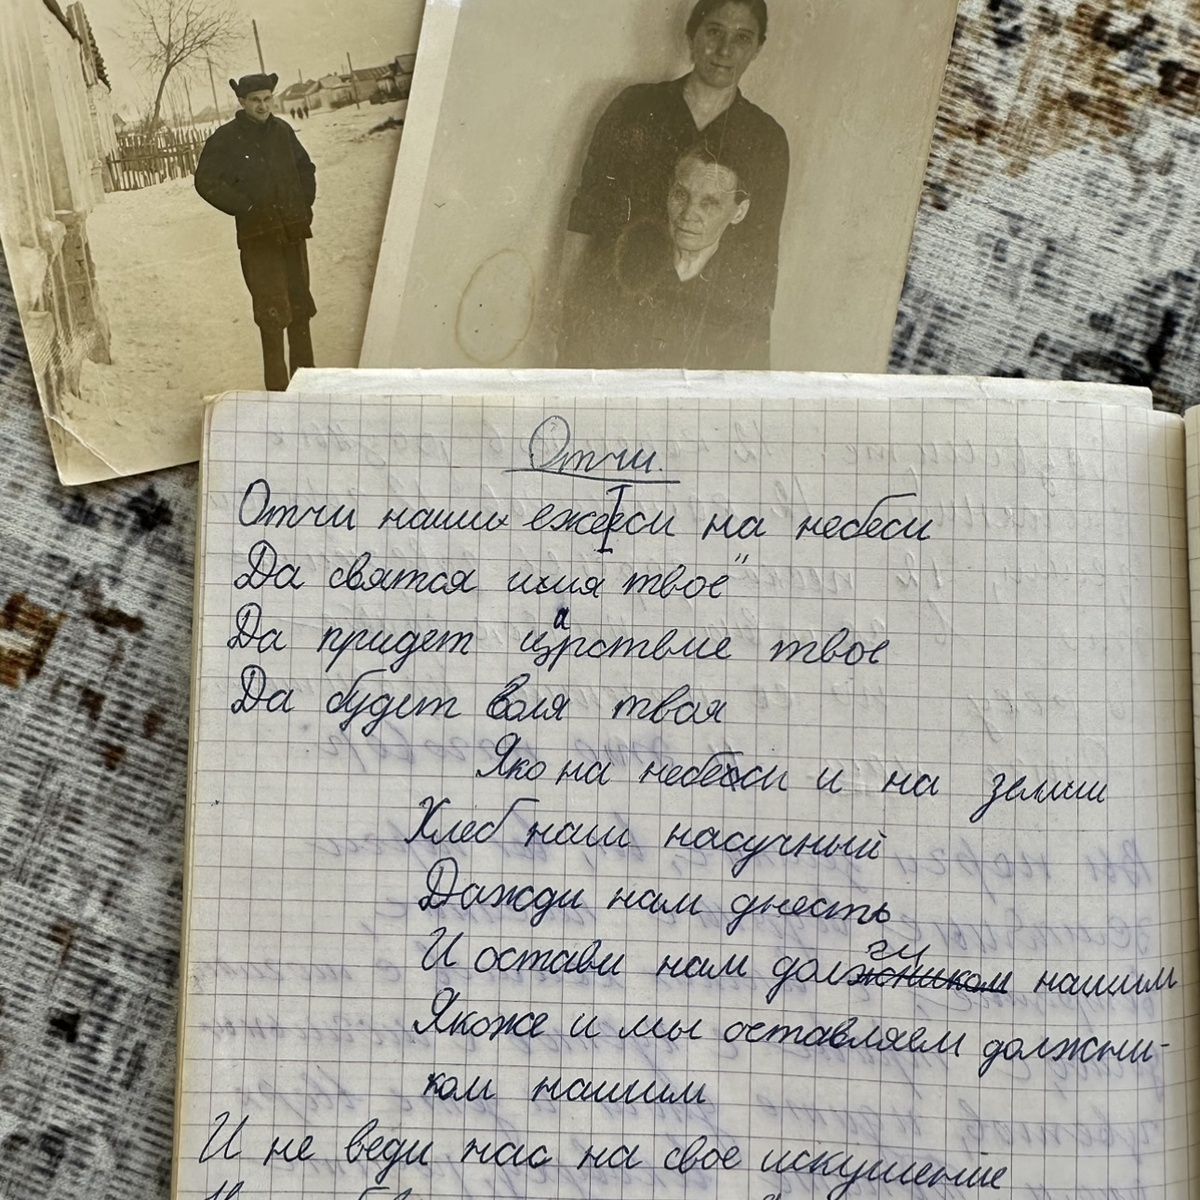 Отчи.
Отчи наших ежеси на небеси
Да святся имя твое"
Да придет царствие твое
Да будет воля твоя
Яко на небеси и на земли
Хлеб наш насучный
Дажди нам днесть
И остави нам долги нашим
Якоже и мы оставляем должни-
ком нашим
И не веди нас на свое искушение